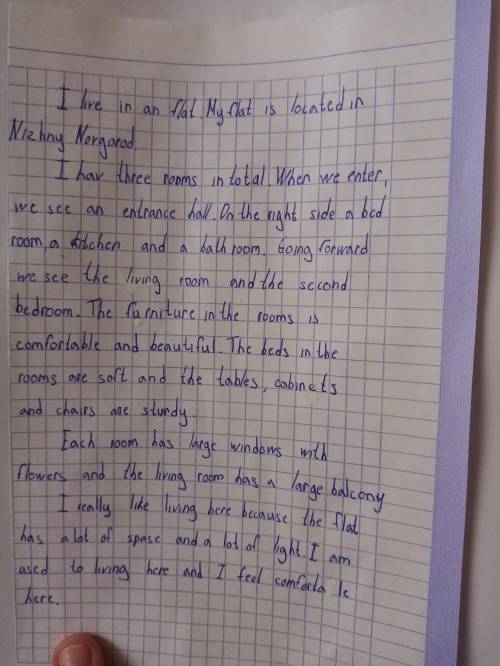 I live in an flat. My flat is located in
Nizhny Norgorod.
I hav three rooms in total. When we enter,
we see an entrance hall. On the right side a bed
room, a kitchen and a bath room. Going forward
we see the living room and the second
bedroom. The furniture in the rooms is
comfortable and beautiful. The beds in the
rooms are soft and the tables, cabinets
and chairs are sturdy.
Each room has large windows with
flowers and the living room has a large balcony
I really like living here because the flat
has a lot of spase and a lot of light. I am
ased to living here and I feel comforta le
here.